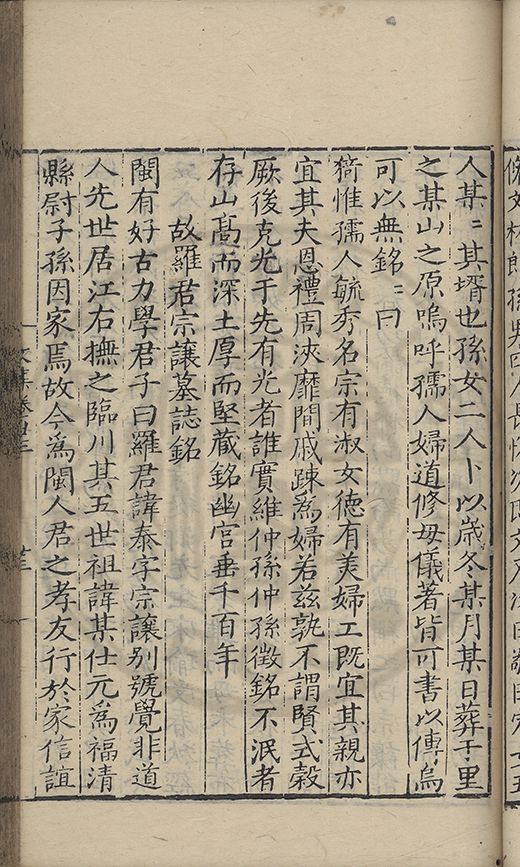 人某〻其壻也孫女二人卜以歲冬某月某日葬于里
之某山之原嗚呼孺人婦道修母儀著皆可書以傳烏
可以無銘〻曰
猗惟孺人毓秀名宗有淑女德有美婦工既宜其親亦
宜其夫恩禮周浹靡間戚踈為婦若茲孰不謂賢式穀
厥後克光于先有光者誰實維仲孫仲孫徵銘不泯者
存山髙而深土厚而堅蔵銘幽宫垂千百年
故羅君宗讓墓誌銘
閩有好古力學君子曰羅君諱泰字宗讓别號覺非道
人先世居江右撫之臨川其五世祖諱某仕元為福清
縣尉子孫因家焉故今為閩人君之孝友行於家信誼